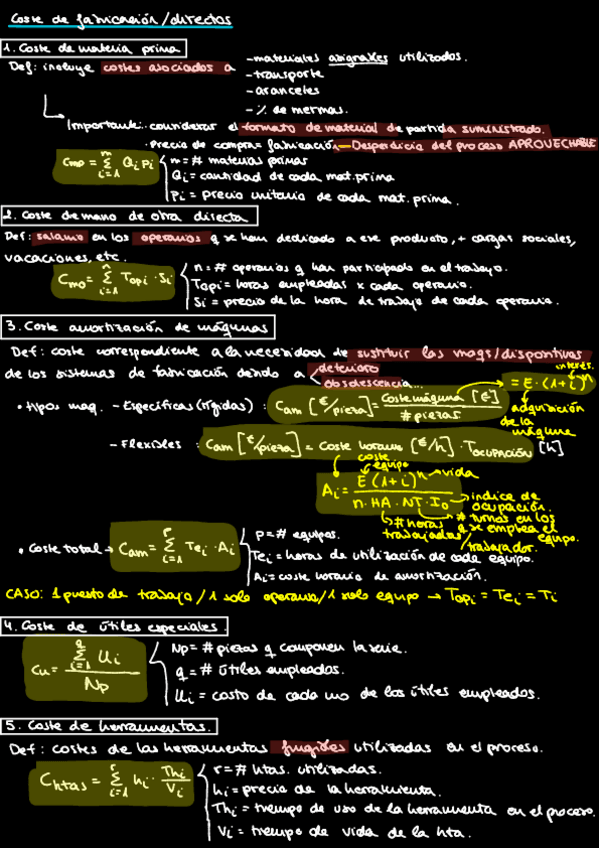 Coste de fabricación/directos
1. Coste de materia prima
Def: incluye costes asociados a
- materiales asignables utilizados.
- transporte
- aranceles
- % de mermas.
Importante: considerar el formato de material de partida suministrado.
· Precio de compra ≠ fabricación — Desperdicio del proceso APROVECHABLE
Cmp = Σ(i=1→m) Qi pi
m = # materias primas
Qi = cantidad de cada mat. prima
pi = precio unitario de cada mat. prima.
2. Coste de mano de obra directa
Def: salario en los operarios q se han dedicado a ese producto, + cargas sociales,
vacaciones, etc.
Cmo = Σ(i=1→n) Topi · Si
n = # operarios q han participado en el trabajo.
Topi = horas empleadas x cada operario.
Si = precio de la hora de trabajo de cada operario.
3. Coste amortización de máquinas
Def: coste correspondiente a la necesidad de sustituir las maqs/dispositivos
de los sistemas de fabricación debido a
deterioro
obsolescencia...
• tipos maq. - Específicas (rígidas) : Cam [€/pieza] = Coste máquina [€] / # piezas
interés.
= E · (1+i)^n
adquisición
de la
máquina
- Flexibles : Cam [€/pieza] = Coste horario [€/h] · Tocupación [h]
coste
equipo
Ai = E (1+i)^n / n · HA · NT · Io
vida
índice de
ocupación.
# turnos en los
q se emplea el
equipo.
# horas
trabajadas/
trabajador.
• Coste total → Cam = Σ(i=1→r) Tei · Ai
p = # equipos.
Tei = horas de utilización de cada equipo.
Ai = coste horario de amortización.
CASO: 1 puesto de trabajo / 1 solo operario / 1 solo equipo → Topi = Tei = Ti
4. Coste de útiles especiales
Cu = Σ(i=1→q) Ui / Np
Np = # piezas q componen la serie.
q = # útiles empleados.
Ui = costo de cada uno de los útiles empleados.
5. Coste de herramientas.
Def: costes de las herramientas fungibles utilizadas en el proceso.
Chtas = Σ(i=1→r) hi · Thi / Vi
r = # htas. utilizadas.
hi = precio de la herramienta.
Thi = tiempo de uso de la herramienta en el proceso.
Vi = tiempo de vida de la hta.